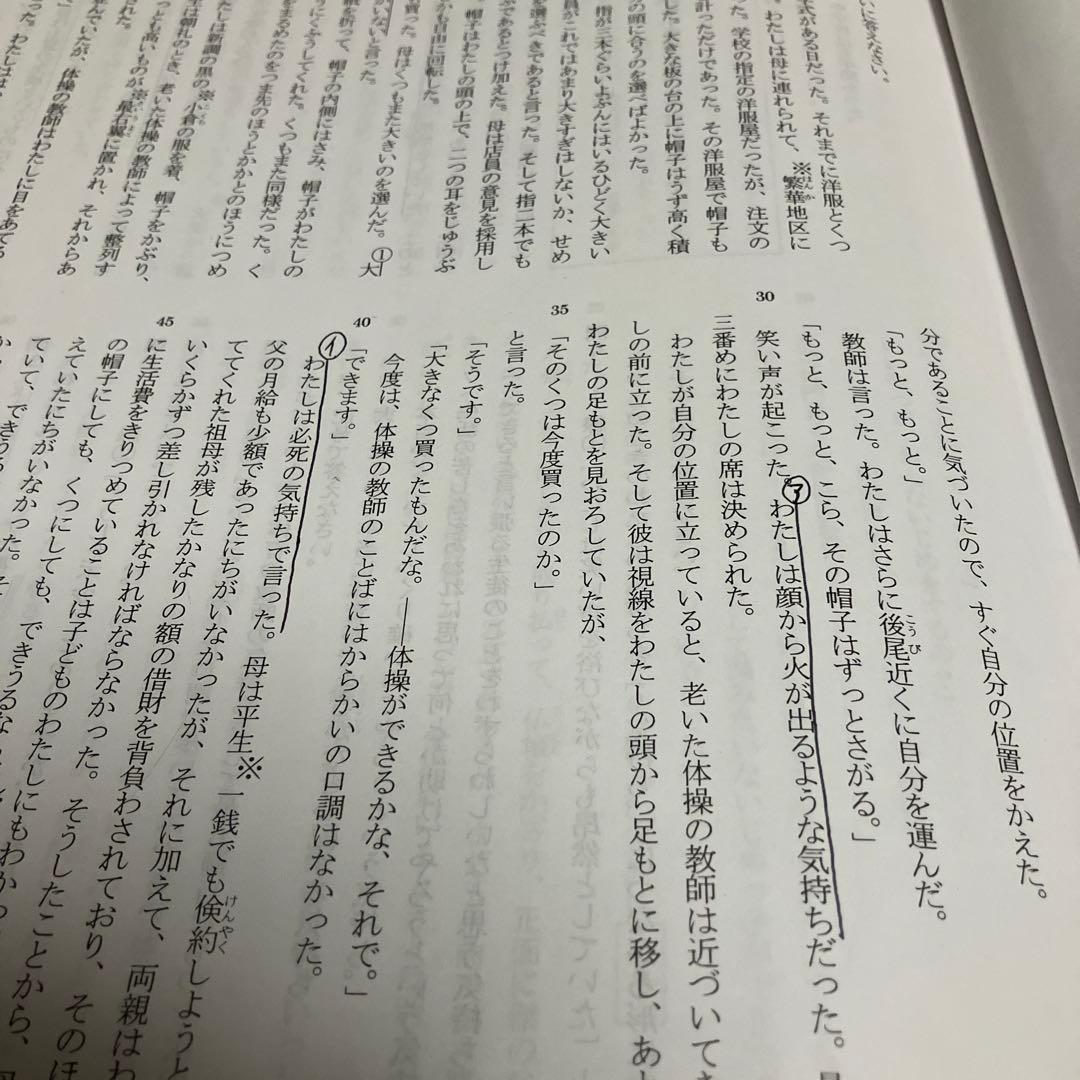 いに答えなさい。
式がある日だった。それまでに洋服とくつ
。わたしは母に連れられて、※繁華地区に
はんか
った。学校の指定の洋服屋だったが、注文の
計っただけであった。その洋服屋で帽子も
した。大きな板の台の上に帽子はうず高く積
の頭に合うのを選べばよかった。
指が三本ぐらいよぶんにはいるひどく大きい
員がこれではあまり大きすぎはしないか、せめ
を選ぶべきであると言った。そして指二本でも
ぶであるとつけ加えた。母は店員の意見を採用し
帽子はわたしの頭の上で、二つの耳をじゅうぶ
かも自由に回転した。
買った。母はくつもまた大きいのを選んだ。①大
かいない と言った。
紙を折って、帽子の内側にはさみ、帽子がわたしの
うにくふうしてくれた。くつもまた同様だった。く
をまるめたのをつま先のほうとかかとのほうにつめ
たしは新調の黒の※小倉の服を着、帽子をかぶり、
生は朝礼のとき、老いた体操の教師によって整列す
っとも高いものが※最右翼に置かれ、それからあ
んでいたが、体操の教師はわたしに目をあてる
分であることに気づいたので、すぐ自分の位置をかえた。
「もっと、もっと。」
教師は言った。わたしはさらに後尾近くに自分を運んだ。
こうび
「もっと、もっと、こら、その帽子はずっとさがる。」
30
笑い声が起こった。㋐わたしは顔から火が出るような気持ちだった。
三番めにわたしの席は決められた。
わたしが自分の位置に立っていると、老いた体操の教師は近づいてき
しの前に立った。そして彼は視線をわたしの頭から足もとに移し、あ
わたしの足もとを見おろしていたが、
35
「そのくつは今度買ったのか。」
と言った。
「そうです。」
「大きなくつ買ったもんだな。――体操ができるかな、それで。」
今度は、体操の教師のことばにはからかいの口調はなかった。
40
「できます。」
㋑わたしは必死の気持ちで言った。母は平生※一銭でも倹約しようと
けんやく
父の月給も少額であったにちがいなかったが、それに加えて、両親はわ
てくれた祖母が残したかなりの額の借財を背負わされており、そのほ
いくらかずつ差し引かれなければならなかった。そうしたことから、
45
に生活費をきりつめていることは子どものわたしにもわかっ
の帽子にしても、くつにしても、できうる
えていたにちがいなかった。そ
ていて、できう